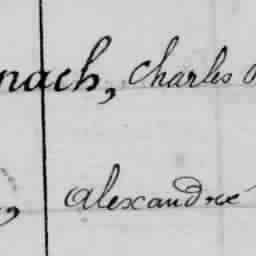 nach, Charles
, Alexandre